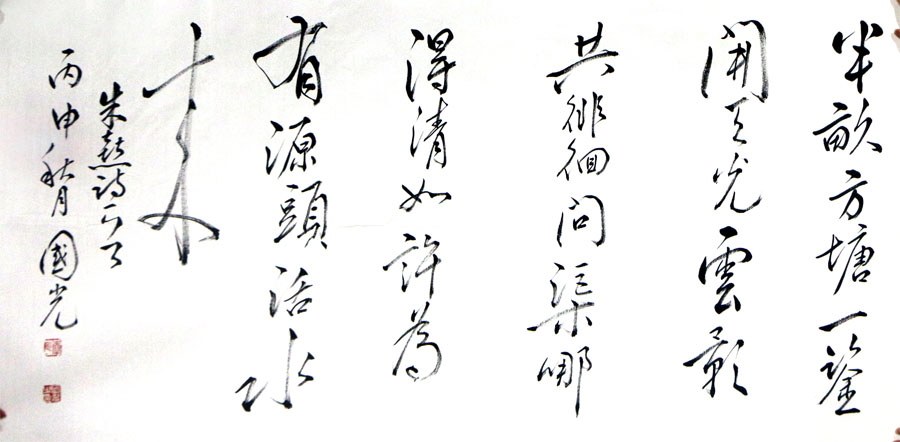 半畝方塘一鑒
開天光雲影
共徘徊問渠哪
得清如許為
有源頭活水
来
朱熹詩一首
丙申秋月國光